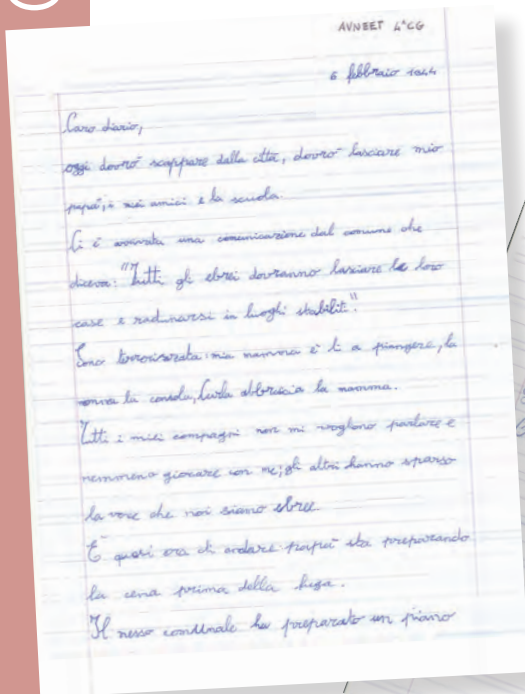 AVNEET 4^CG
6 febbraio 1944
Caro diario,
oggi dovrò scappare dalla città, dovrò lasciare mio
papà, i miei amici e la scuola.
Ci è arrivata una comunicazione dal comune che
diceva: "Tutti gli ebrei dovranno lasciare le loro
case e radunarsi in luoghi stabiliti."
Sono terrorizzata: mia mamma è lì a piangere, la
nonna la consola, Carla abbraccia la mamma.
Tutti i miei compagni non mi vogliono parlare e
nemmeno giocare con me; gli altri hanno sparso
la voce che noi siamo ebree.
È quasi ora di andare papà sta preparando
la cena prima della fuga.
Il messo comunale ha preparato un piano